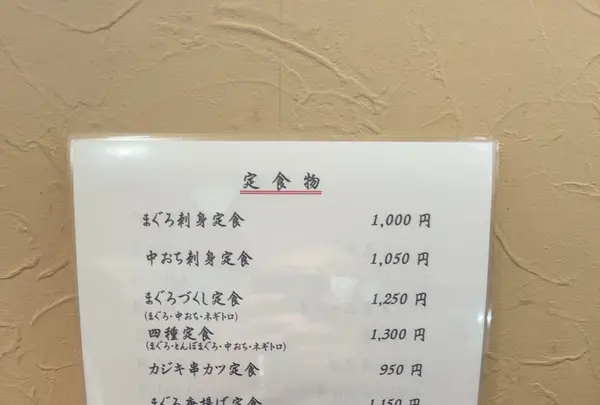 定食物
まぐろ刺身定食 1,000 円
中おち刺身定食 1,050 円
まぐろづくし定食 1,250 円
(まぐろ・中おち・ネギトロ)
四種定食 1,300 円
(まぐろ・とんぼまぐろ・中おち・ネギトロ)
カジキ串カツ定食 950 円
まぐろ唐揚げ定食 1,150 円